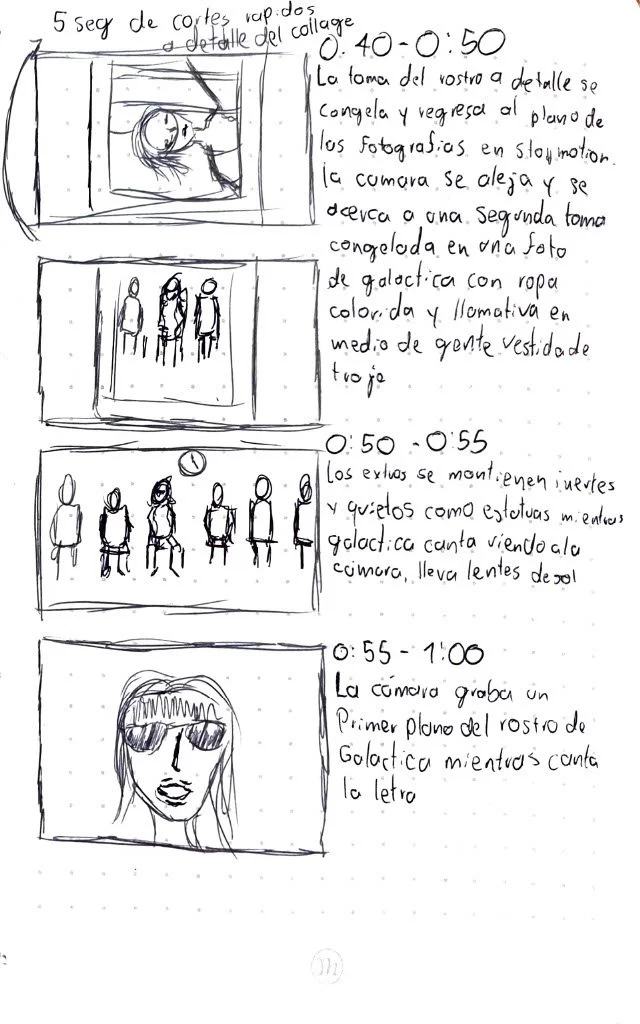 5 seg de cortes rapidos
a detalle del collage
0:40-0:50
La toma del rostro a detalle se
congela y regresa al plano de
las fotografias en stop motion.
la camara se aleja y se
acerca a una segunda toma
congelada en una foto
de galactica con ropa
colorida y llamativa en
medio de gente vestida de
traje
0:50-0:55
Los extras se mantienen inertes
y quietos como estatuas mientras
galactica canta viendo a la
cámara, lleva lentes de sol
0:55-1:00
La cámara graba un
Primer plano del rostro de
Galactica mientras canta
la letra
m